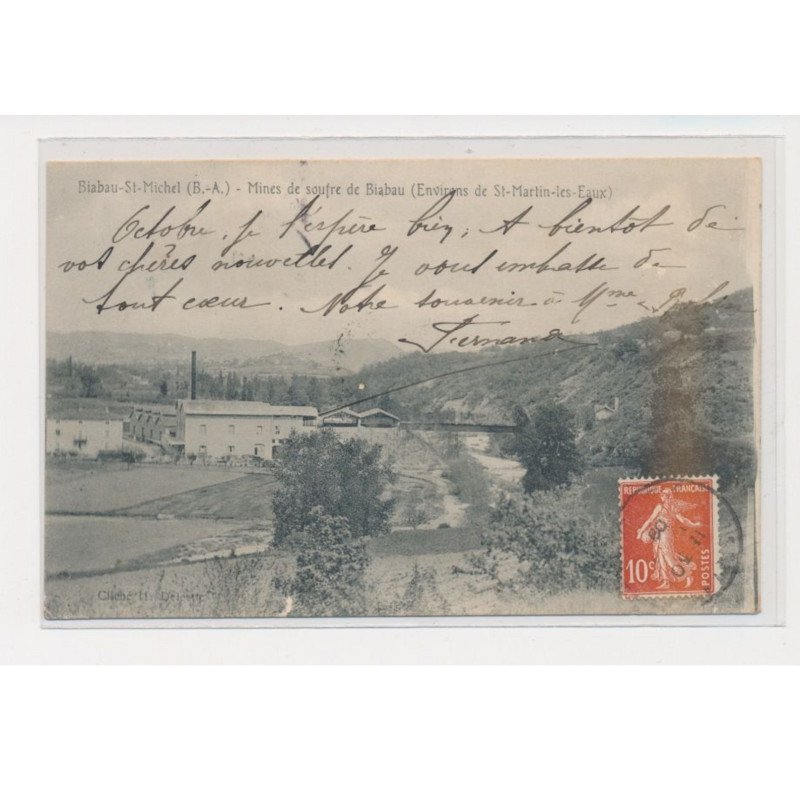 Biabau-St-Michel (B.-A.) - Mines de soufre de Biabau (Environs de St-Martin-les-Eaux)
Octobre, je l'espère bien; A bientôt de
vos chères nouvelles. Je vous embrasse de
tout cœur. Notre souvenir à Mme
Fernand
REPUBLIQUE FRANÇAISE
10c
POSTES
Cliché H.